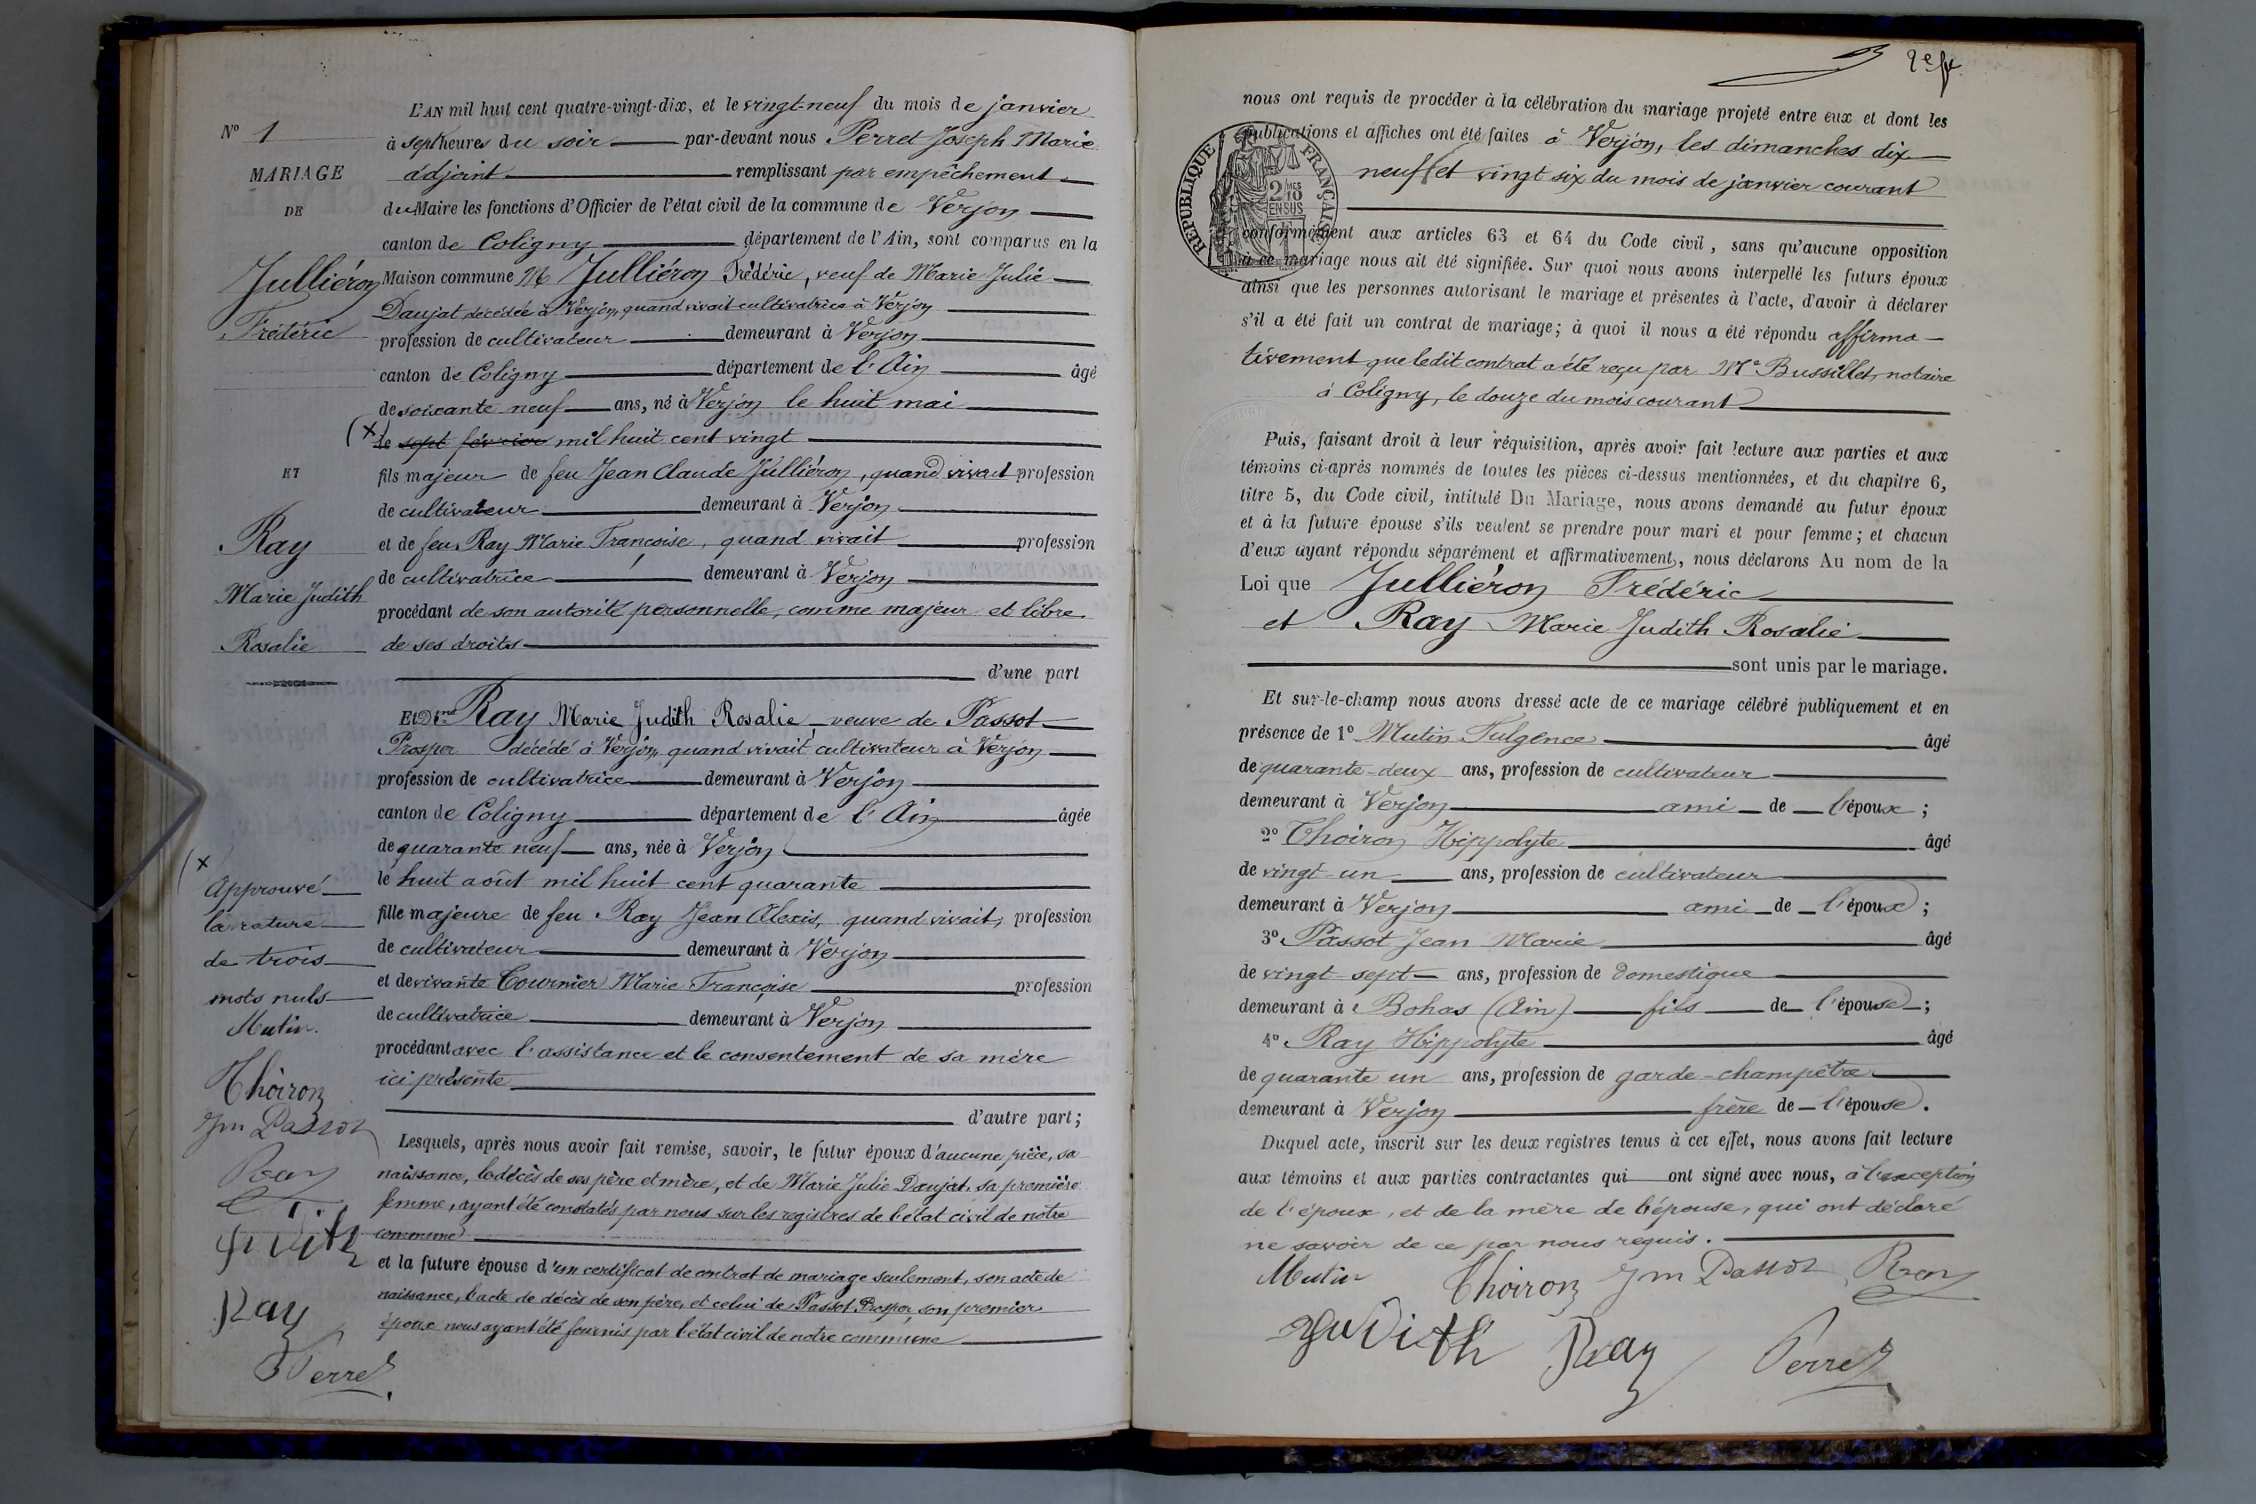 L'AN mil huit cent quatre-vingt-dix, et le vingt-neuf du mois de janvier
à sept heures du soir par-devant nous Perret Joseph Marie
adjoint remplissant par empêchement
du Maire les fonctions d'Officier de l'état civil de la commune de Verjon
canton de Coligny département de l'Ain, sont comparus en la
Maison commune Mr Julliéron Frédéric, veuf de Marie Julie
Daujat décédée à Verjon, quand vivait cultivatrice à Verjon
profession de cultivateur demeurant à Verjon
canton de Coligny département de l'Ain âgé
de soixante neuf ans, né à Verjon le huit mai
(x le sept février mil huit cent vingt
fils majeur de feu Jean Claude Julliéron, quand vivait profession
de cultivateur demeurant à Verjon
et de feu Ray Marie Françoise, quand vivait profession
de cultivatrice demeurant à Verjon
procédant de son autorité personnelle, comme majeur et libre
de ses droits
d'une part
Et Dme Ray Marie Judith Rosalie, veuve de Passot
Prosper décédé à Verjon, quand vivait cultivateur à Verjon
profession de cultivatrice demeurant à Verjon
canton de Coligny département de l'Ain âgée
de quarante neuf ans, née à Verjon
le huit août mil huit cent quarante
fille majeure de feu Ray Jean Alexis, quand vivait, profession
de cultivateur demeurant à Verjon
et de vivante Cournier Marie Françoise profession
de cultivatrice demeurant à Verjon
procédant avec l'assistance et le consentement de sa mère
ici présente
d'autre part;
Lesquels, après nous avoir fait remise, savoir, le futur époux d'aucune pièce, sa
naissance, le décès de ses père et mère, et de Marie Julie Daujat, sa première
femme, ayant été constatés par nous sur les registres de l'état civil de notre
commune
et la future épouse d'un certificat de contrat de mariage seulement, son acte de
naissance, l'acte de décès de son père, et celui de Passot Prosper, son premier
époux nous ayant été fournis par l'état civil de notre commune
N° 1
MARIAGE
DE
Julliéron
Frédéric
ET
Ray
Marie Judith
Rosalie
(x
Approuvé
la rature
de trois
mots nuls
Mutin.
Thoiron
Jm Passot
Ray
Judith
Ray
Perret
2e
nous ont requis de procéder à la célébration du mariage projeté entre eux et dont les
publications et affiches ont été faites à Verjon, les dimanches dix
neuf et vingt six du mois de janvier courant
RÉPUBLIQUE FRANÇAISE
2 MES
10
EN SUS
conformément aux articles 63 et 64 du Code civil, sans qu'aucune opposition
à ce mariage nous ait été signifiée. Sur quoi nous avons interpellé les futurs époux
ainsi que les personnes autorisant le mariage et présentes à l'acte, d'avoir à déclarer
s'il a été fait un contrat de mariage; à quoi il nous a été répondu affirma-
tivement que ledit contrat a été reçu par Me Bussillet, notaire
à Coligny, le douze du mois courant
Puis, faisant droit à leur réquisition, après avoir fait lecture aux parties et aux
témoins ci-après nommés de toutes les pièces ci-dessus mentionnées, et du chapitre 6,
titre 5, du Code civil, intitulé Du Mariage, nous avons demandé au futur époux
et à la future épouse s'ils veulent se prendre pour mari et pour femme; et chacun
d'eux ayant répondu séparément et affirmativement, nous déclarons Au nom de la
Loi que Julliéron Frédéric
et Ray Marie Judith Rosalie
sont unis par le mariage.
Et sur-le-champ nous avons dressé acte de ce mariage célébré publiquement et en
présence de 1° Mutin Fulgence âgé
de quarante-deux ans, profession de cultivateur
demeurant à Verjon ami de l'époux;
2° Thoiron Hippolyte âgé
de vingt-un ans, profession de cultivateur
demeurant à Verjon ami de l'époux;
3° Passot Jean Marie âgé
de vingt-sept ans, profession de domestique
demeurant à Bohas (Ain) fils de l'épouse;
4° Ray Hippolyte âgé
de quarante un ans, profession de garde-champêtre
demeurant à Verjon frère de l'épouse.
Duquel acte, inscrit sur les deux registres tenus à cet effet, nous avons fait lecture
aux témoins et aux parties contractantes qui ont signé avec nous, à l'exception
de l'époux, et de la mère de l'épouse, qui ont déclaré
ne savoir de ce par nous requis.
Mutin Thoiron Jm Passot Ray
Judith Ray Perret